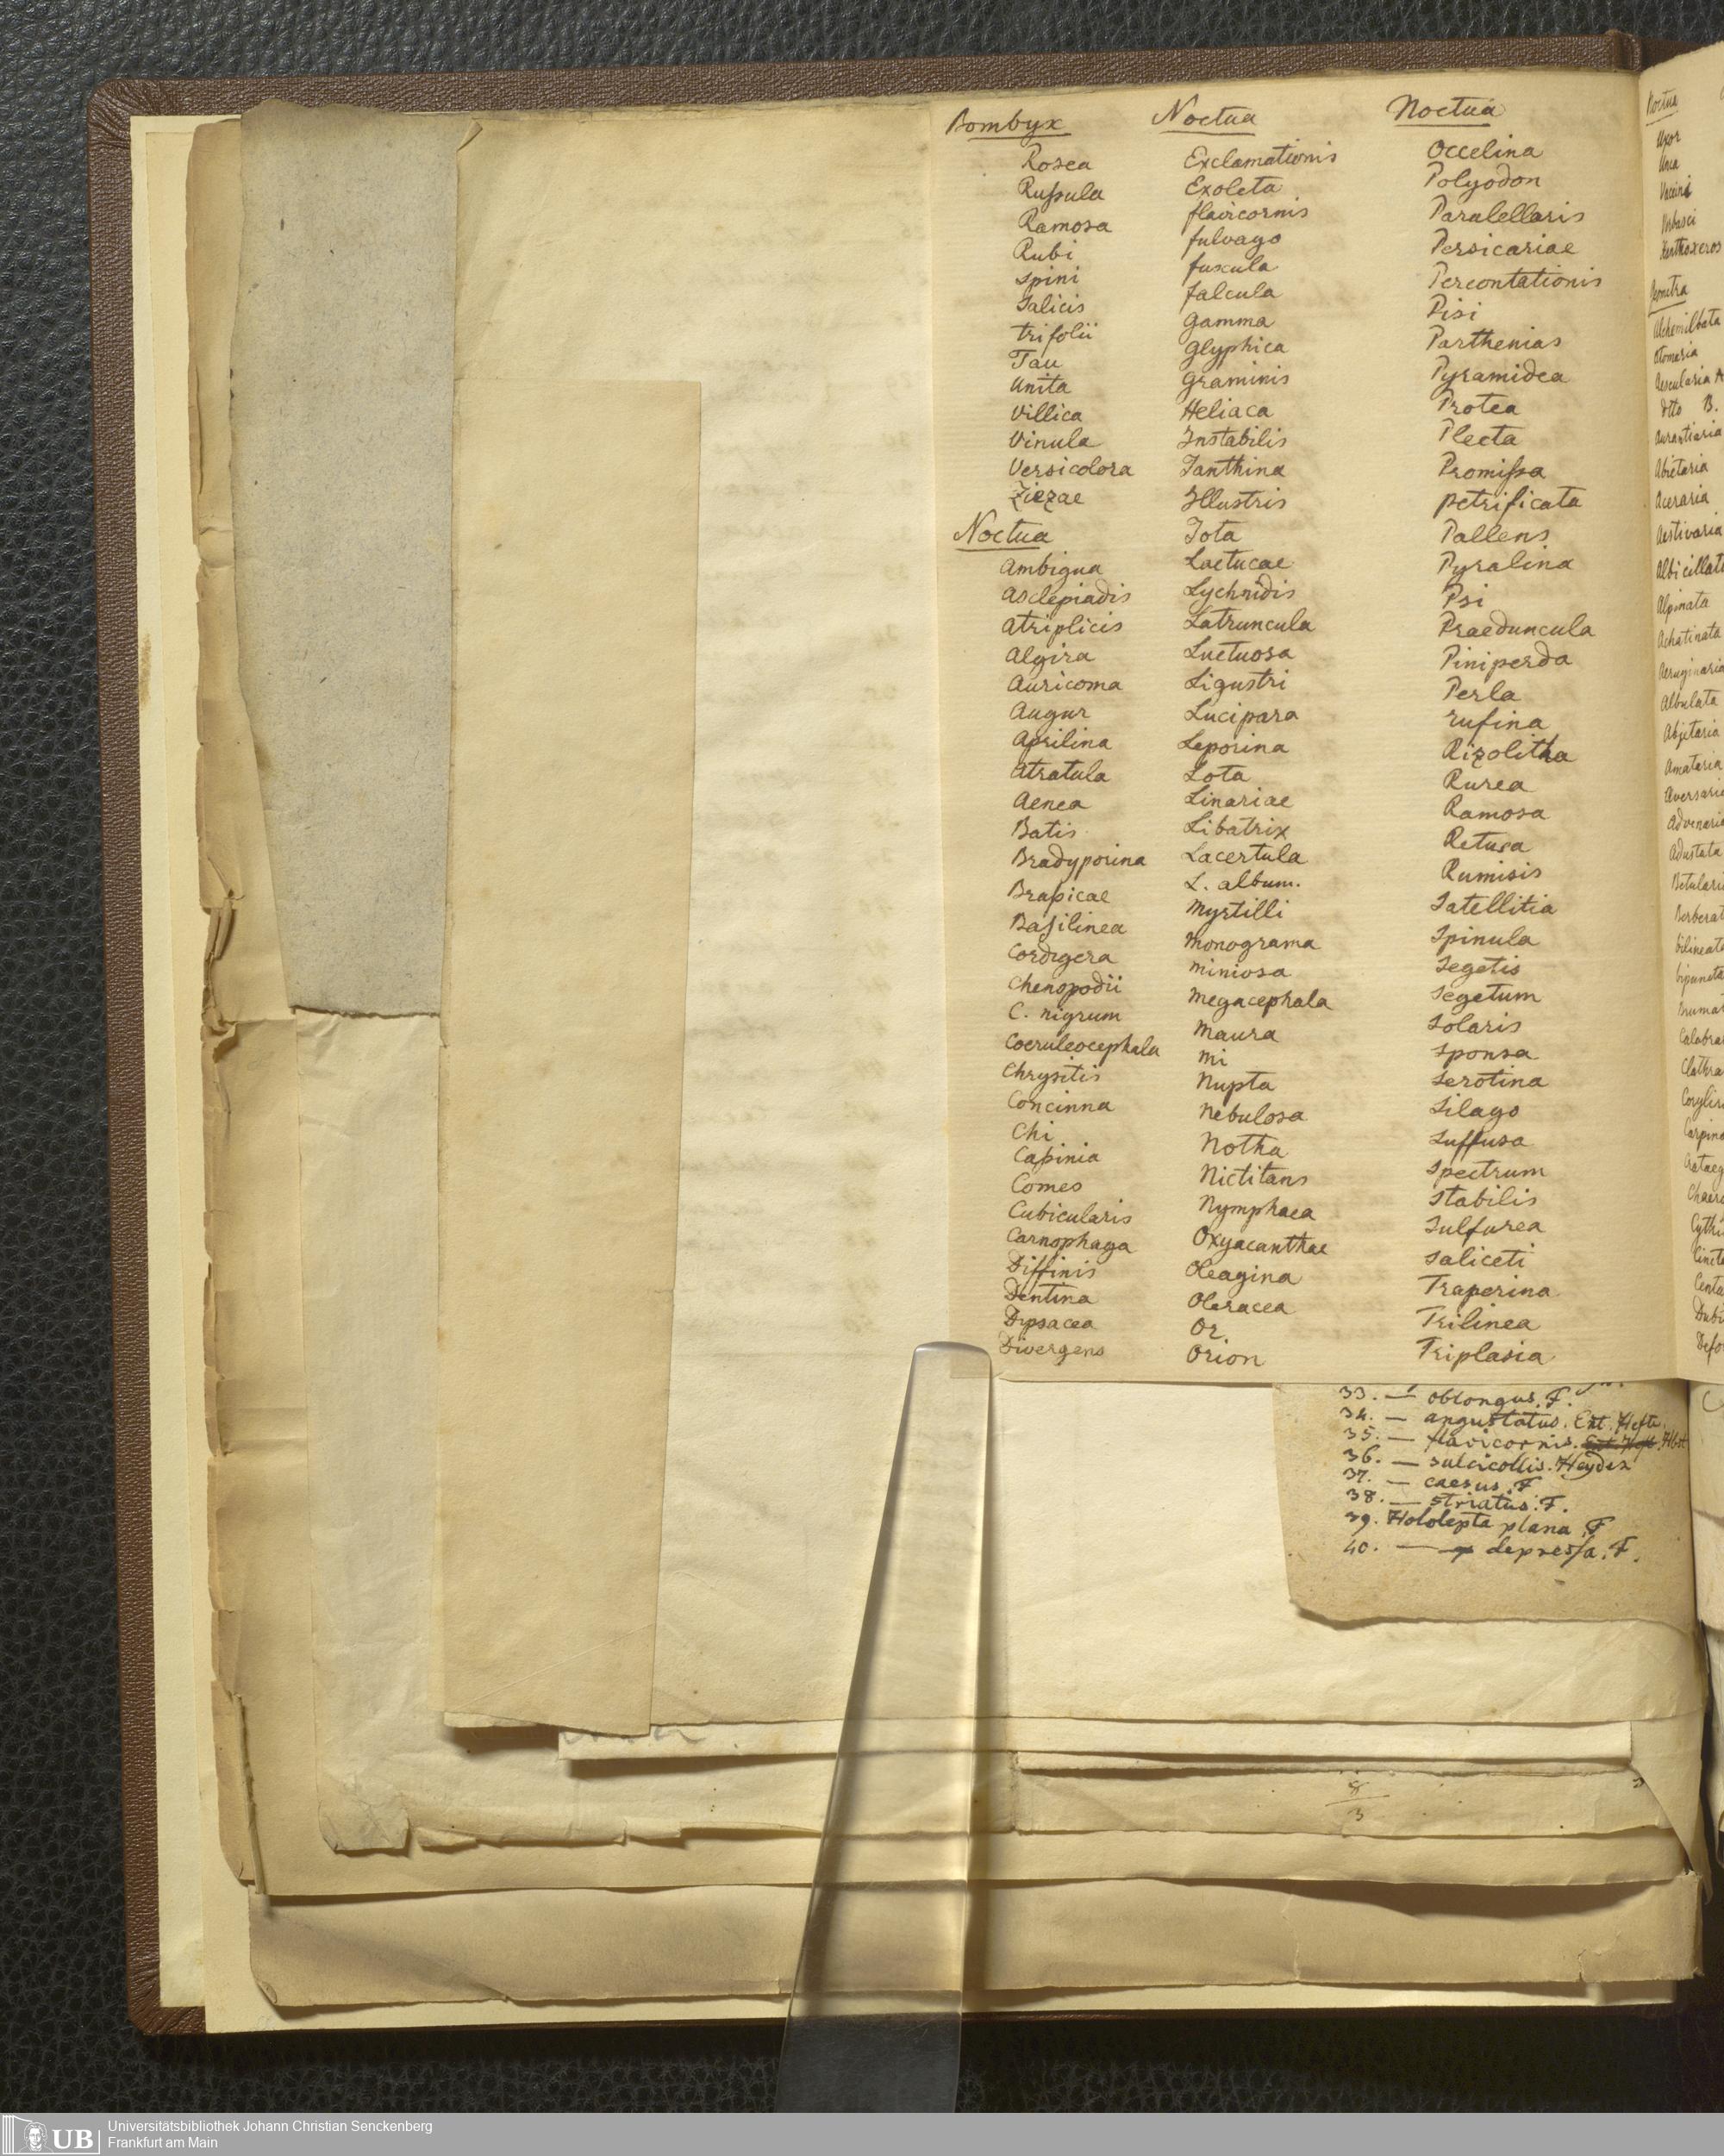 Bombyx
Rosea
Ruſsula
Ramosa
Rubi
Spini
Salicis
trifolii
Tau
Unita
Villica
Vinula
Versicolora
Ziczac
Noctua
Ambigua
Asclepiadis
Atriplicis
Algira
Auricoma
Augur
Aprilina
Atratula
Aenea
Batis
Bradyporina
Braſsicae
Baſilinea
Cordigera
Chenopodii
C. nigrum
Coeruleocephala
Chrysitis
Concinna
Chi
Caſsinia
Comes
Cubicularis
Carnophaga
Diffinis
Dentina
Dipsacea
Divergens
Noctua
Exclamationis
Exoleta
flavicornis
fulvago
fuscula
falcula
Gamma
Glyphica
Graminis
Heliaca
Instabilis
Ianthina
Illustris
Iota
Lactucae
Lychnidis
Latruncula
Luctuosa
Ligustri
Lucipara
Leporina
Lota
Linariae
Libatrix
Lacertula
L. album.
Myrtilli
Monograma
Miniosa
Megacephala
Maura
Mi
Nupta
Nebulosa
Notha
Nictitans
Nymphaea
Oxyacanthae
Oleagina
Oleracea
Or.
Orion
Noctua
Occelina
Polyodon
Paralellaris
Persicariae
Percontationis
Pisi
Parthenias
Pyramidea
Protea
Plecta
Promiſsa
petrificata
Pallens
Pyralina
Psi
Praeduncula
Piniperda
Perla
rufina
Rizolitha
Rurea
Ramosa
Retusa
Rumisis
Satellitia
Spinula
Segetis
Segetum
Solaris
Sponsa
Serotina
Silago
Suffusa
Spectrum
Stabilis
Sulfurea
Saliceti
Traperina
Trilinea
Triplasia
33. — oblongus. F.
34. — angustatus. Ent. Hefte.
35. — flavicornis. Hbst
36. — sulcicollis. Heyden
37. — caesus. F
38. — striatus. F.
39. Hololepta plana. F
40. — depreſsa. F.
8
3
Noctua
Uxor
Verbasci
Xanthoxeros
Geometra
Alchemillata
Atomaria
Aescularia A
dtto B.
Aurantiaria
Abietaria
Aceraria
Aestivaria
Alpinata
Achatinata
Albulata
Amataria
UB
Universitätsbibliothek Johann Christian Senckenberg
Frankfurt am Main